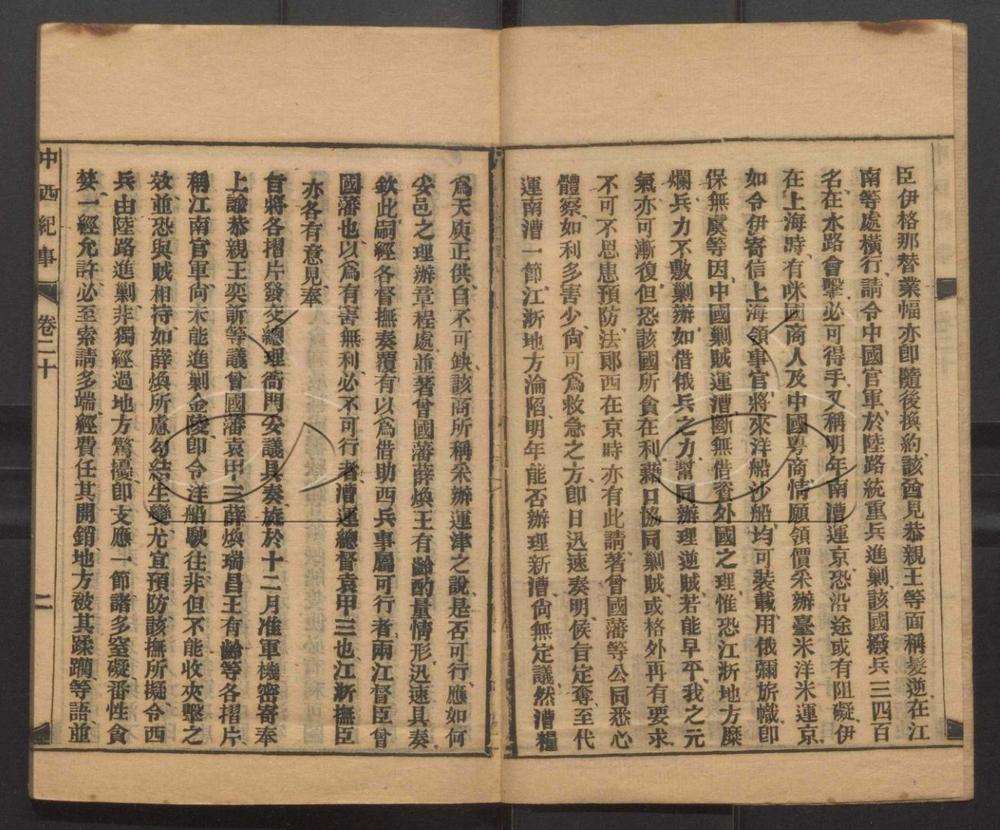 臣伊格那替業幅亦卽隨後換約該酋見恭親王等面稱髮逆在江
南等處橫行請令中國官軍於陸路統重兵進剿該國撥兵三四百
名在水路會擊必可得手又稱明年南漕運京恐沿途或有阻礙伊
在上海時有咪國商人及中國粵商情願領價采辦臺米洋米運京
如令伊寄信上海領事官將來洋船沙船均可裝載用俄彌旂幟卽
保無虞等因中國剿賊運漕斷無借資外國之理惟恐江浙地方糜
爛兵力不敷剿辦如借俄兵之力幫同辦理逆賊若能早平我之元
氣亦可漸復但恐該國所貪在利藉口協同剿賊或格外再有要求
不可不思患預防法郞西在京時亦有此請著曾國藩等公同悉心
體察如利多害少尙可爲救急之方卽日迅速奏明候旨定奪至代
運南漕一節江浙地方淪陷明年能否辦理新漕尙無定議然漕糧
爲天庾正供自不可缺該商所稱采辦運津之說是否可行應如何
妥邑之理辦章程處並著曾國藩薛煥王有齡酌量情形迅速具奏
欽此嗣經各督撫奏覆有以爲借助西兵事屬可行者兩江督臣曾
國藩也以爲有害無利必不可行者漕運總督袁甲三也江浙撫臣
亦各有意見奉
旨將各摺片發交總理衙門妥議具奏旋於十二月准軍機密寄奉
上諭恭親王奕訢等議曾國藩袁甲三薛煥瑞昌王有齡等各摺片
稱江南官軍尙未能進剿金陵卽令洋船駛往非但不能收夾擊之
效並恐與賊相持如薛煥所慮勾結生變尤宜預防該撫所擬令西
兵由陸路進剿非獨經過地方驚擾卽支應一節諸多窒礙番性貪
婪一經允許必至索請多端經費任其開銷地方被其蹂躪等語並
中西紀事
卷二十
二